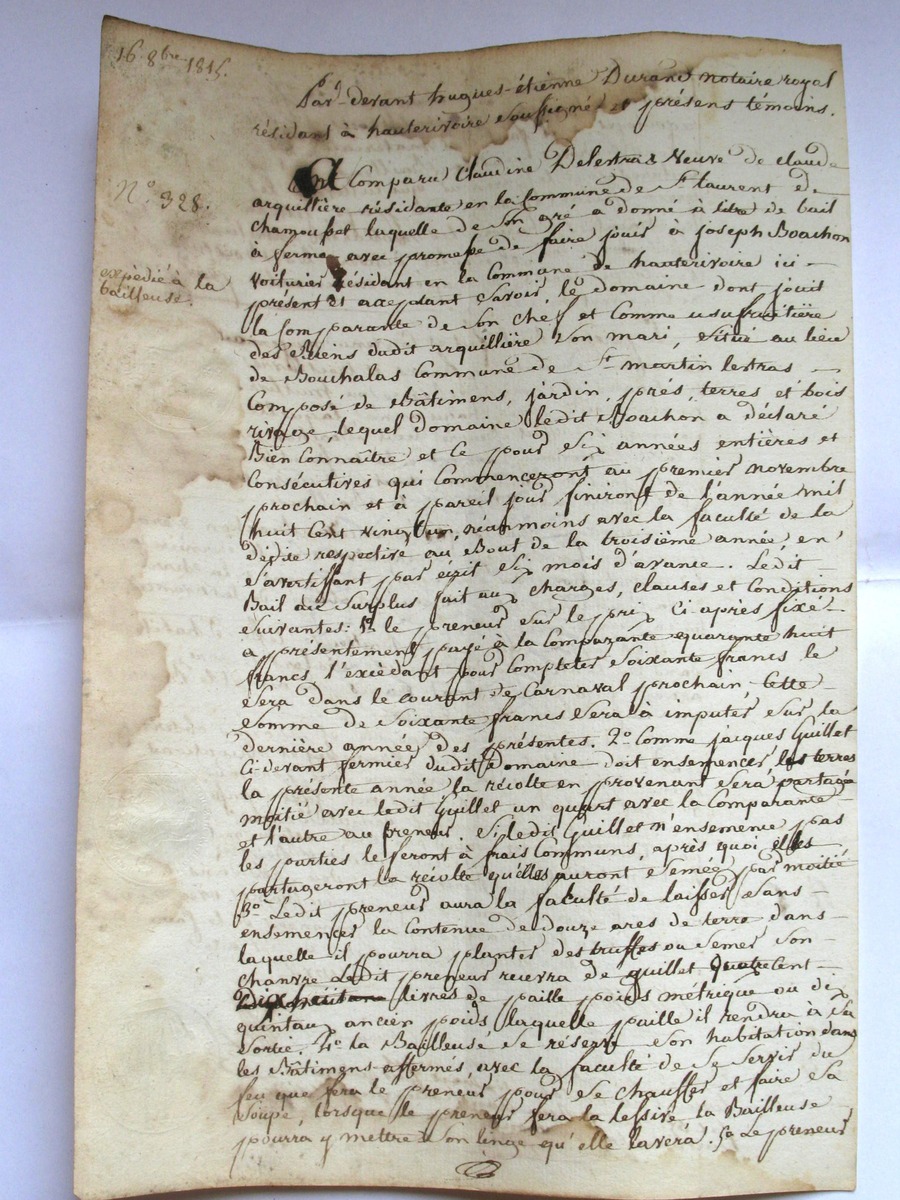 16. 8bre 1815.
Par-devant hugues-étienne Durand notaire royal
résidant à hauterivoire soussigné et présens témoins.
N° 328.
Comparu Claudine Delestra Veuve de claude
arquillière résidante en la Commune de St laurent de
chamousset laquelle de son gré a donné à titre de bail
à ferme avec promesse de faire jouir à joseph Boachon
expédié à la
bailleuse.
voiturier résidant en la Commune de hauterivoire ici -
présent et acceptant Savoir, le domaine dont jouit
la Comparante de son chef et Comme usufruitière
des Biens dudit arquillière son mari, situé au lieu
de Bouchalas Commune de St martin lestras -
Composé de Bâtimens, jardin, prés, terres et bois
rivage, lequel domaine ledit Boachon a déclaré
Bien Connaître et ce pour six années entières et
Consécutives qui Commenceront au premier novembre
prochain et à pareil jour finiront de l'année mil
huit Cent vingt un, néanmoins avec la faculté de la
dédite respective au Bout de la troisième année en
s'avertissant par écrit six mois d'avance. Ledit -
Bail au Surplus fait aux charges, clauses et Conditions
suivantes: 1° le preneur sur le prix Ci après fixé
a présentement payé à la Comparante quarante huit
francs, l'excédant pour completer soixante francs le
sera dans le courant de Carnaval prochain, Cette -
somme de soixante francs sera à imputer sur la
dernière année des présentes. 2° Comme jacques Guillet
Ci-devant fermier dudit Domaine doit ensemencer les terres
la présente année la récolte en provenant sera partagée
moitié avec ledit Guillet un quart avec la Comparante
et l'autre au preneur. Si ledit Guillet n'ensemence pas
les parties le feront à frais Communs, après quoi elles
partageront la récolte qu'elles auront semée par moitié
3° Ledit preneur aura la faculté de laisser sans -
ensemencer la Contenue de douze ares de terre dans -
laquelle il pourra planter des truffes ou semer son -
chanvre Ledit preneur recevra de guillet quatre Cent -
livres de paille poids métrique ou dix
quintaux ancien poids laquelle paille il rendra à sa
sortie. 4° la Bailleuse se réserve son habitation dans
les Bâtimens affermés, avec la faculté de se servir du
feu que fera le preneur pour se chauffer et faire sa
soupe, lorsque le preneur fera la lessive la Bailleuse
pourra y mettre son linge qu'elle lavera. 5° Le preneur